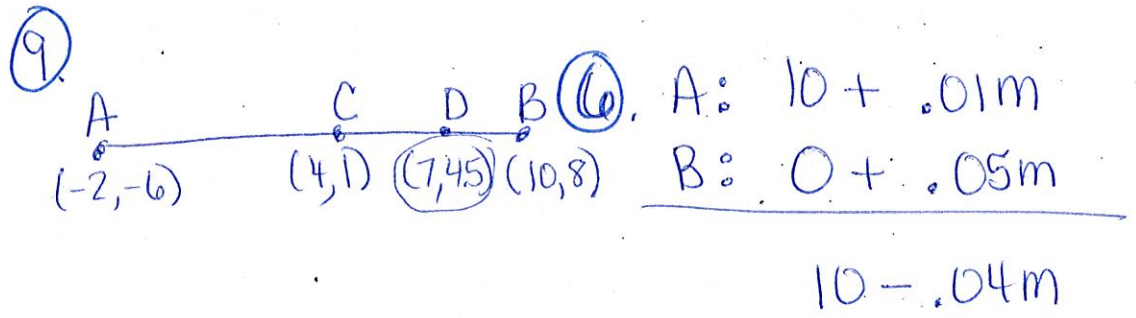 9.
A C D B
(-2,-6) (4,1) (7,4.5) (10,8)
6. A: 10 + .01m
B: 0 + .05m
10 - .04m